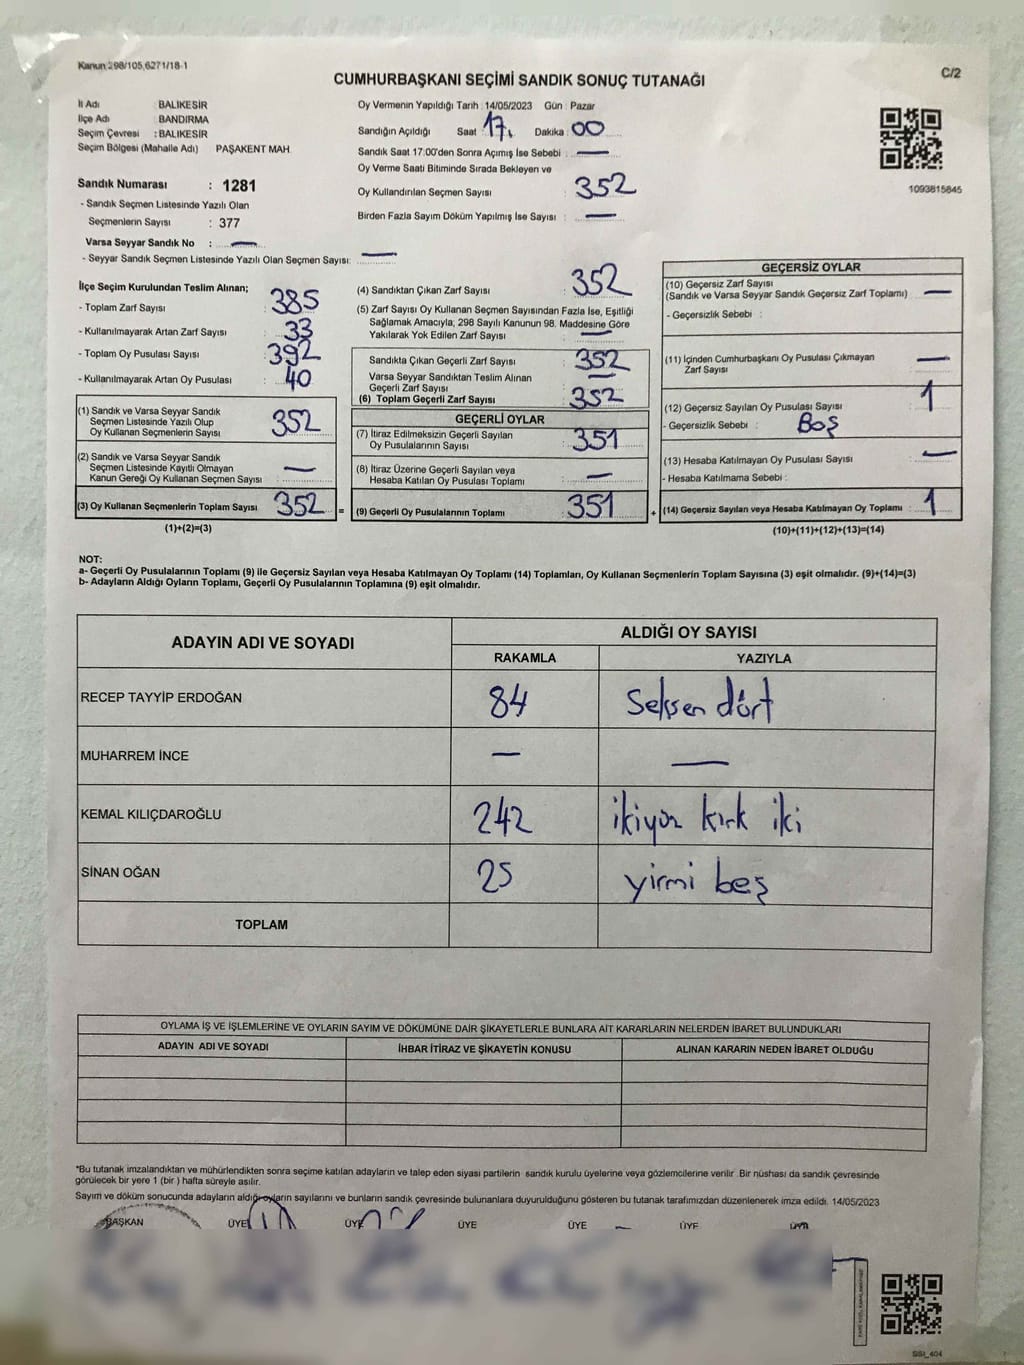 Kanun:298/105,6271/18-1
C/2
CUMHURBAŞKANI SEÇİMİ SANDIK SONUÇ TUTANAĞI
İl Adı : BALIKESİR
İlçe Adı : BANDIRMA
Seçim Çevresi : BALIKESİR
Seçim Bölgesi (Mahalle Adı) PAŞAKENT MAH.
Sandık Numarası : 1281
- Sandık Seçmen Listesinde Yazılı Olan
Seçmenlerin Sayısı : 377
Varsa Seyyar Sandık No : —
- Seyyar Sandık Seçmen Listesinde Yazılı Olan Seçmen Sayısı: —
Oy Vermenin Yapıldığı Tarih : 14/05/2023 Gün : Pazar
Sandığın Açıldığı Saat : 17. Dakika : 00
Sandık Saat 17:00'den Sonra Açımış İse Sebebi : —
Oy Verme Saati Bitiminde Sırada Bekleyen ve
Oy Kullandırılan Seçmen Sayısı : 352
Birden Fazla Sayım Döküm Yapılmış İse Sayısı : —
1093815845
İlçe Seçim Kurulundan Teslim Alınan;
- Toplam Zarf Sayısı : 385
- Kullanılmayarak Artan Zarf Sayısı : 33
- Toplam Oy Pusulası Sayısı : 392
- Kullanılmayarak Artan Oy Pusulası : 40
(1) Sandık ve Varsa Seyyar Sandık
Seçmen Listesinde Yazılı Olup
Oy Kullanan Seçmenlerin Sayısı 352
(2) Sandık ve Varsa Seyyar Sandık
Seçmen Listesinde Kayıtlı Olmayan
Kanun Gereği Oy Kullanan Seçmen Sayısı —
(3) Oy Kullanan Seçmenlerin Toplam Sayısı 352 =
(1)+(2)=(3)
(4) Sandıktan Çıkan Zarf Sayısı : 352
(5) Zarf Sayısı Oy Kullanan Seçmen Sayısından Fazla İse, Eşitliği
Sağlamak Amacıyla, 298 Sayılı Kanunun 98. Maddesine Göre
Yakılarak Yok Edilen Zarf Sayısı : —
Sandıkta Çıkan Geçerli Zarf Sayısı : 352
Varsa Seyyar Sandıktan Teslim Alınan
Geçerli Zarf Sayısı : —
(6) Toplam Geçerli Zarf Sayısı : 352
GEÇERLİ OYLAR
(7) İtiraz Edilmeksizin Geçerli Sayılan
Oy Pusulalarının Sayısı : 351
(8) İtiraz Üzerine Geçerli Sayılan veya
Hesaba Katılan Oy Pusulası Toplamı : —
(9) Geçerli Oy Pusulalarının Toplamı : 351 +
GEÇERSİZ OYLAR
(10) Geçersiz Zarf Sayısı
(Sandık ve Varsa Seyyar Sandık Geçersiz Zarf Toplamı) : —
- Geçersizlik Sebebi :
(11) İçinden Cumhurbaşkanı Oy Pusulası Çıkmayan
Zarf Sayısı : —
(12) Geçersiz Sayılan Oy Pusulası Sayısı : 1
- Geçersizlik Sebebi : Boş
(13) Hesaba Katılmayan Oy Pusulası Sayısı : —
- Hesaba Katılmama Sebebi :
(14) Geçersiz Sayılan veya Hesaba Katılmayan Oy Toplamı : 1
(10)+(11)+(12)+(13)=(14)
NOT:
a- Geçerli Oy Pusulalarının Toplamı (9) ile Geçersiz Sayılan veya Hesaba Katılmayan Oy Toplamı (14) Toplamları, Oy Kullanan Seçmenlerin Toplam Sayısına (3) eşit olmalıdır. (9)+(14)=(3)
b- Adayların Aldığı Oyların Toplamı, Geçerli Oy Pusulalarının Toplamına (9) eşit olmalıdır.
ADAYIN ADI VE SOYADI ALDIĞI OY SAYISI
RAKAMLA YAZIYLA
RECEP TAYYİP ERDOĞAN 84 Seksen dört
MUHARREM İNCE — —
KEMAL KILIÇDAROĞLU 242 ikiyüz kırk iki
SİNAN OĞAN 25 yirmi beş
TOPLAM
OYLAMA İŞ VE İŞLEMLERİNE VE OYLARIN SAYIM VE DÖKÜMÜNE DAİR ŞİKAYETLERLE BUNLARA AİT KARARLARIN NELERDEN İBARET BULUNDUKLARI
ADAYIN ADI VE SOYADI İHBAR İTİRAZ VE ŞİKAYETİN KONUSU ALINAN KARARIN NEDEN İBARET OLDUĞU
*Bu tutanak imzalandıktan ve mühürlendikten sonra seçime katılan adayların ve talep eden siyasi partilerin sandık kurulu üyelerine veya gözlemcilerine verilir. Bir nüshası da sandık çevresinde
görülecek bir yere 1 (bir ) hafta süreyle asılır.
Sayım ve döküm sonucunda adayların aldığı oyların sayılarını ve bunların sandık çevresinde bulunanlara duyurulduğunu gösteren bu tutanak tarafımızdan düzenlenerek imza edildi. 14/05/2023
BAŞKAN ÜYE ÜYE ÜYE ÜYE ÜYE ÜYE
SSI_404